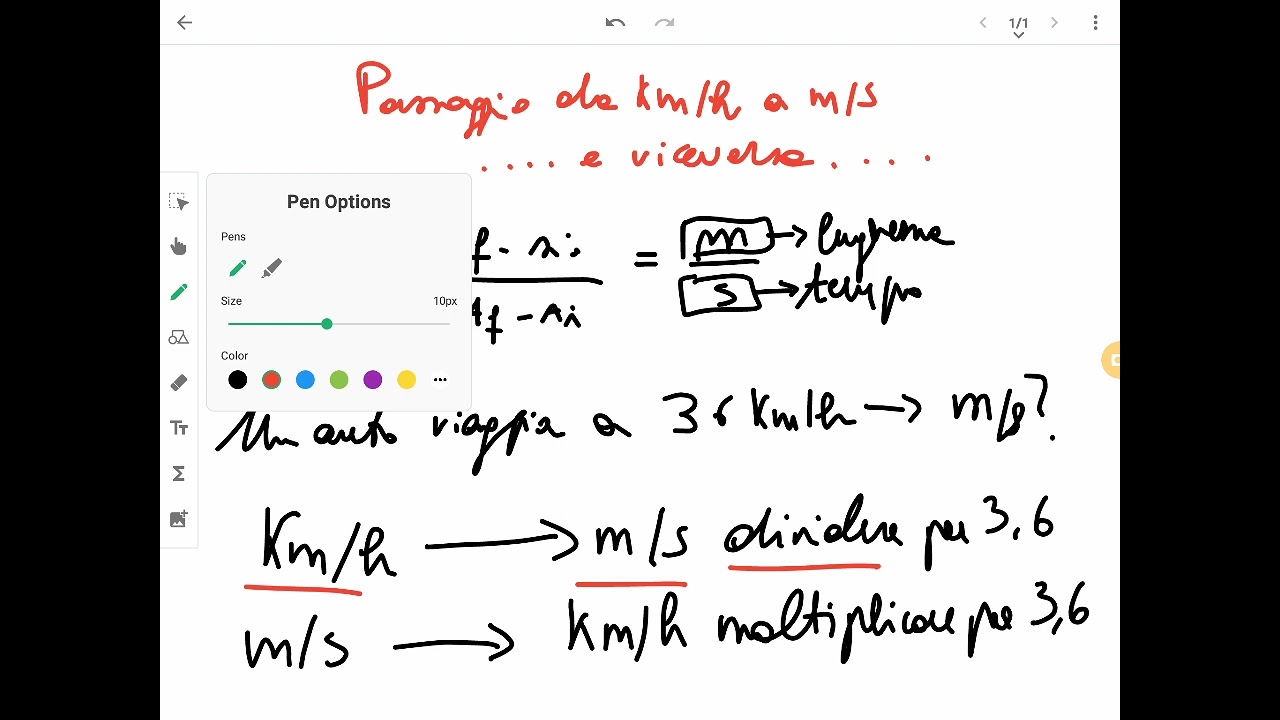 1/1
Passaggio da Km/h a m/s
.... e viceversa ....
Pen Options
Pens
Size 10px
Color
f - si = m → lunghezza
tf - ti s → tempo
Un auto viaggia a 36 Km/h → m/s?
Km/h → m/s dividere per 3,6
m/s → Km/h moltiplicare per 3,6
Tт
Σ